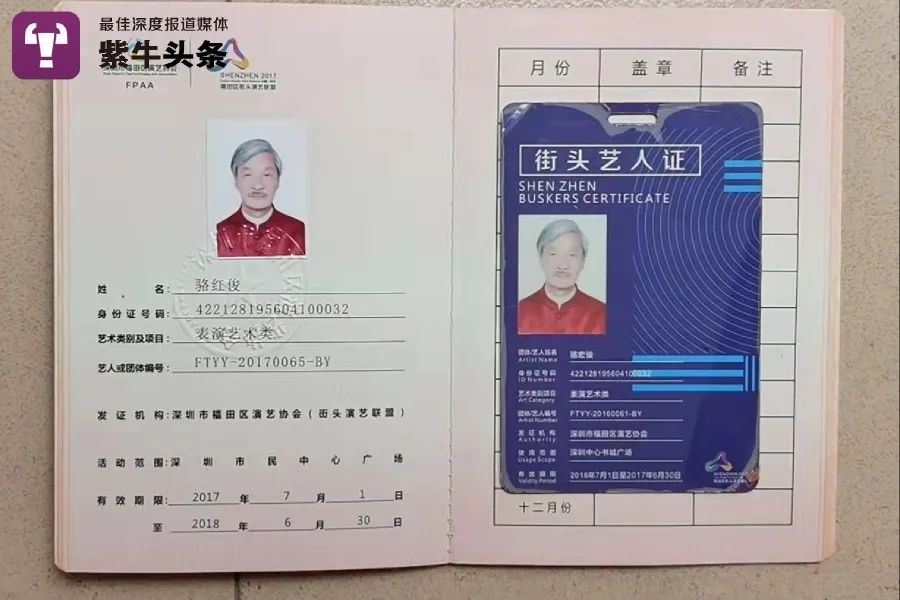 最佳深度报道媒体
紫牛头条
深圳市福田区演艺协会
FPAA
SHENZHEN 2017
福田区街头演艺联盟
姓 名: 骆红俊
身份证号码: 422128195604100032
艺术类别及项目: 表演艺术类
艺人或团体编号: FTYY-20170065-BY
发证机构:深圳市福田区演艺协会(街头演艺联盟)
活动范围:深圳市民中心广场
有效期限: 2017 年 7 月 1 日
至 2018 年 6 月 30 日
月份 盖章 备注
街头艺人证
SHEN ZHEN
BUSKERS CERTIFICATE
团体/艺人姓名 骆宏骏
Artist Name
身份证号码 422128195604100032
ID Number
艺术类别项目 表演艺术类
Art Category
团体/艺人编号 FTYY-20160061-BY
Artist Number
发证机构 深圳市福田区演艺协会
Authority
使用范围 深圳中心书城广场
Usage Scope
有效期限 2016年7月1日至2017年6月30日
Validity Period
十二月份